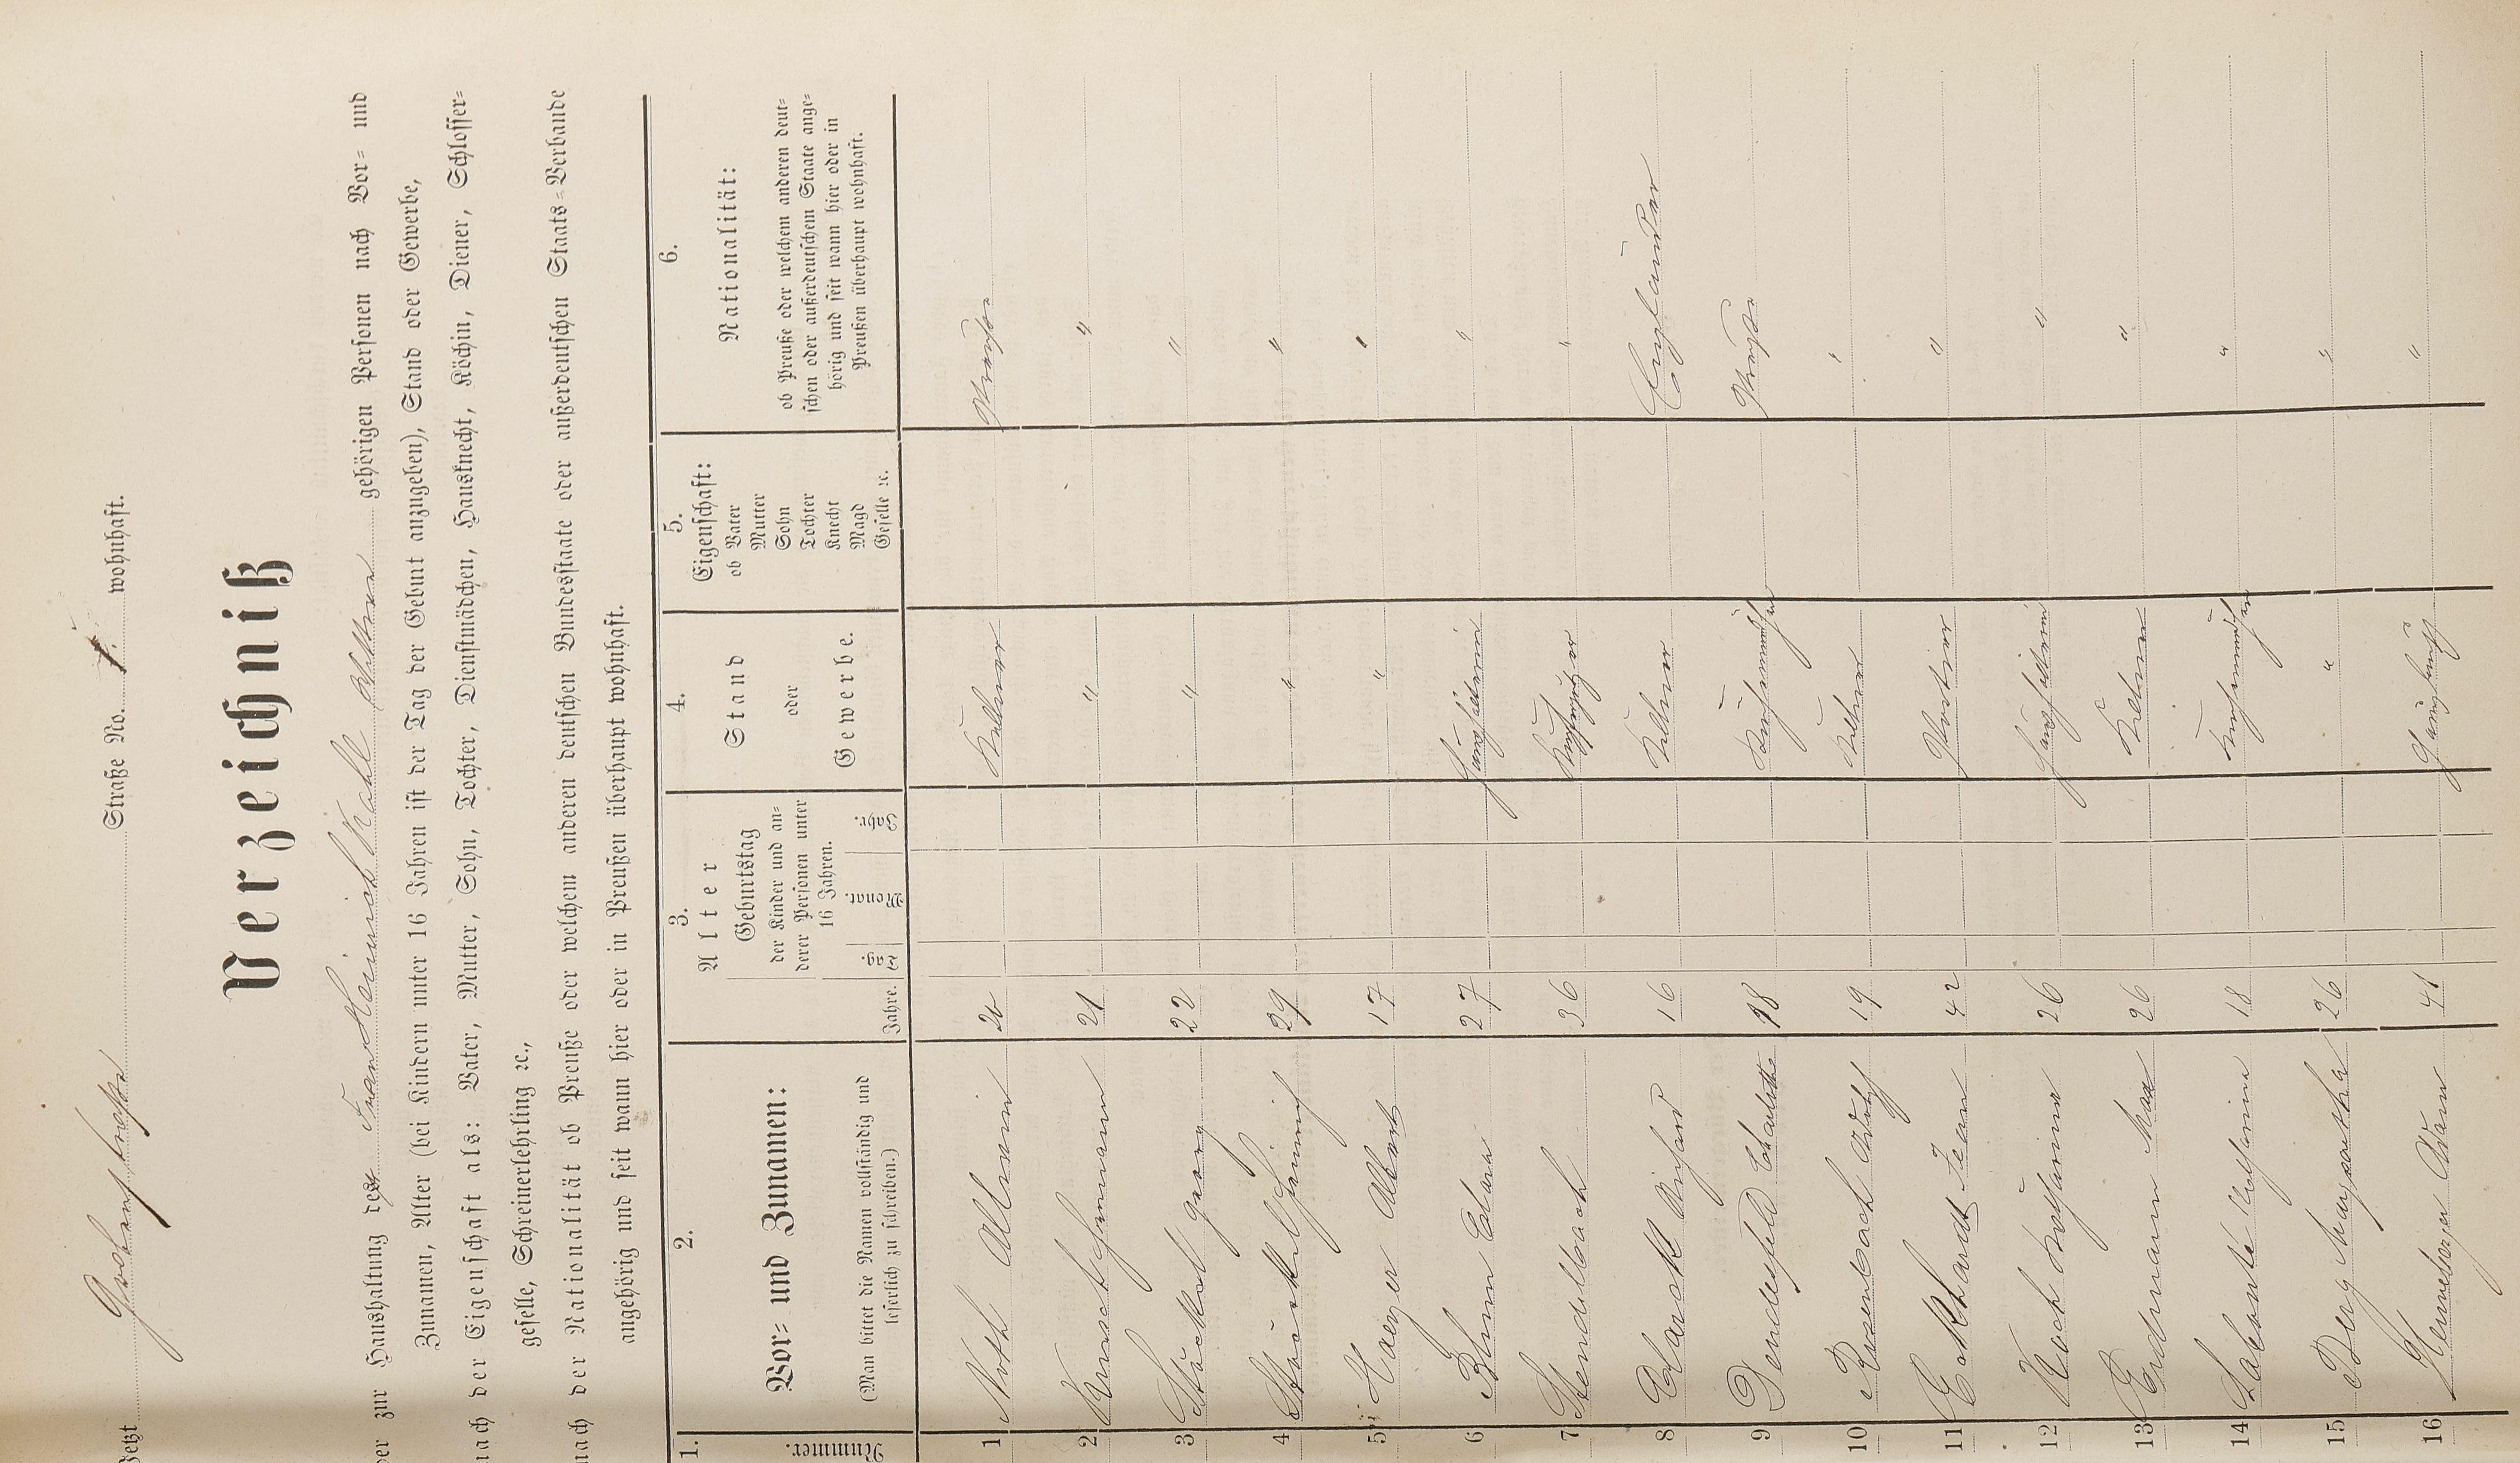 Jetzt Goethestraße Straße No. 1. wohnhaft.
Verzeichniß
der zur Haushaltung der Frau Heinrich Kahl Wittwe gehörigen Personen nach Vor= und
Zunamen, Alter (bei Kindern unter 16 Jahren ist der Tag der Geburt anzugeben), Stand oder Gewerbe,
nach der Eigenschaft als: Vater, Mutter, Sohn, Tochter, Dienstmädchen, Hausknecht, Köchin, Diener, Schlosser=
geselle, Schreinerlehrling ꝛc.,
nach der Nationalität ob Preuße oder welchem anderen deutschen Bundesstaate oder außerdeutschen Staats=Verbande
angehörig und seit wann hier oder in Preußen überhaupt wohnhaft.
1. 2. 3. 4. 5. 6.
Nummer. Vor= und Zunamen: (Man bittet die Namen vollständig und leserlich zu schreiben.)
Alter Jahre. Geburtstag der Kinder und anderer Personen unter 16 Jahren. Tag. Monat. Jahr.
Stand oder Gewerbe.
Eigenschaft: ob Vater Mutter Sohn Tochter Knecht Magd Geselle ꝛc.
Nationalität: ob Preuße oder welchem anderen deut=
schen oder außerdeutschem Staate ange=
hörig und seit wann hier oder in
Preußen überhaupt wohnhaft.
1 Noth Allwin 20 Kellner Preuße
2 Hermann 21 " "
3 Stöckel Georg 22 " "
4 Heinrich 29 " "
5 Albert 17 " "
6 Blum Clara 27 Haushälterin "
7 Stendebach 36 "
8 Richard 16 Kellner Engländer
9 18 Küchenmädchen Preuße
10 Rosenbach Adolf 19 Kellner "
11 Eckhardt Jean 42 Portier "
12 Koch Katharina 26 Haushälterin "
13 Erdmann Max 26 Kellner "
14 18 Küchenmädchen "
15 Berg Margaretha 26 " "
16 Henneberger Adam 41 "